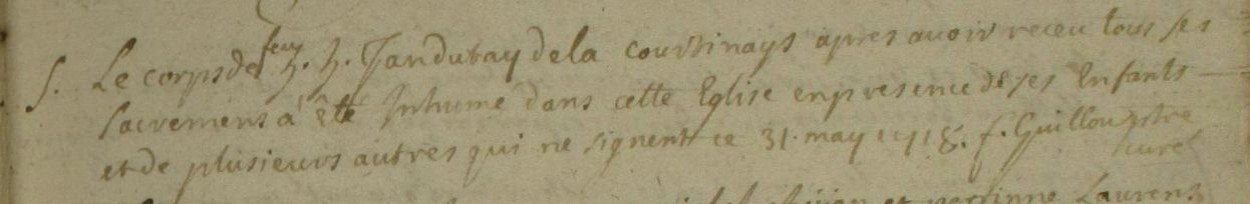 S. Le corps de feu h. h. Jan dubay de la coursinays apres auoir receu tous ses
sacremens a été Inhumé dans cette Eglise en presence de ses Enfants
et de plusieurs autres qui ne signent ce 31. may 1718. f. Guillou ptre
curé
et perrinne Laurens